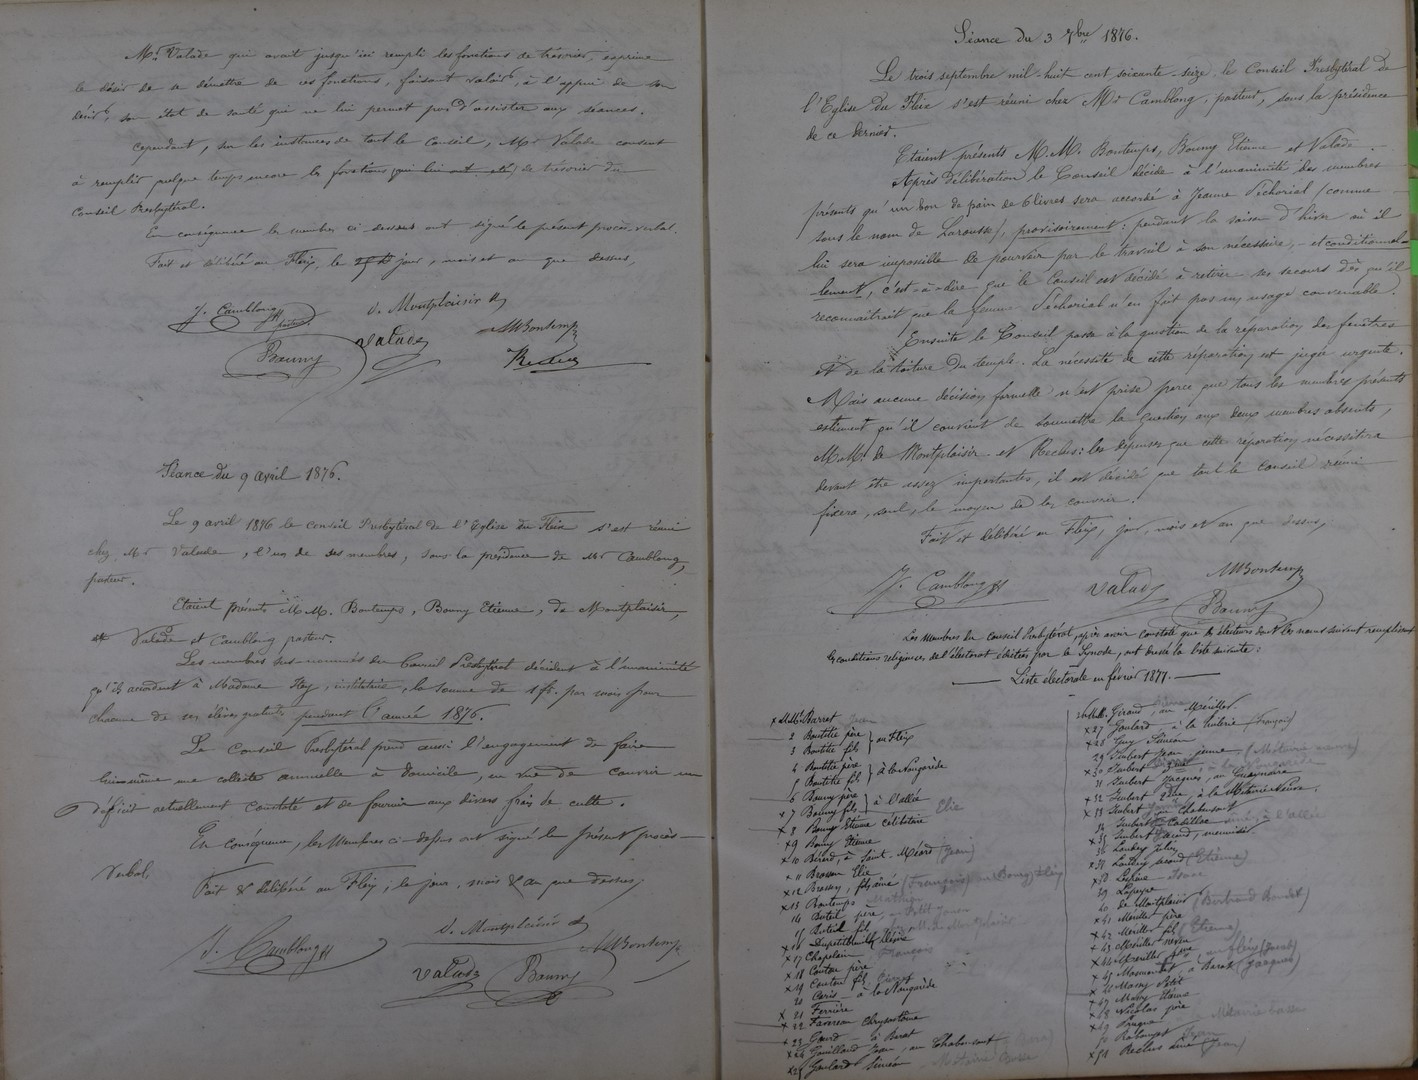 Mr Valade qui avait jusqu'ici rempli les fonctions de trésorier, exprime
le désir de se démettre de ces fonctions, faisant valoir, à l'appui de son
désir, son état de santé qui ne lui permet pas d'assister aux séances.
Cependant, sur les instances de tout le Conseil, Mr Valade consent
à remplir quelque temps encore les fonctions de trésorier du
Conseil Presbytéral.
En conséquence les membres ci-dessus ont signé le présent procès verbal.
Fait et délibéré au Fleix, le jour, mois et an que dessus,
J. Camblong
D. Montplaisir
Valade
MBontemps
Bouny
Reclus
Séance du 9 avril 1876.
Le 9 avril 1876 le conseil Presbytéral de l'Eglise du Fleix s'est réuni
chez Mr Valade, l'un de ses membres, sous la présidence de Mr Camblong,
pasteur.
Etaient présents M.M. Bontemps, Bouny Etienne, de Montplaisir,
Valade et Camblong pasteur.
Les membres sus-nommés du Conseil Presbytéral décident à l'unanimité
qu'ils accordent à Madame Hey, institutrice, la somme de 1 fr. par mois pour
chacune de ses élèves gratuits pendant l'année 1876.
Le Conseil Presbytéral prend aussi l'engagement de faire
lui-même une collecte annuelle à domicile, en vue de couvrir un
déficit actuellement constaté et de fournir aux divers frais de culte.
En conséquence, les Membres ci-dessus ont signé le présent procès-
Verbal,
Fait & délibéré au Fleix, le jour, mois & an que dessus,
J. Camblong
D. Montplaisir
MBontemps
Valade
Bouny
Séance du 3 7bre 1876.
Le trois septembre mil-huit cent soixante-seize, le Conseil Presbytéral de
l'Eglise du Fleix s'est réuni chez Mr Camblong, pasteur, sous la présidence
de ce dernier.
Etaient présents M.M. Bontemps, Bouny Etienne et Valade.
Après délibération le Conseil décide à l'unanimité des membres
présents qu'un bon de pain de 6 livres sera accordé à Jeanne Péchorial (connue
sous le nom de Larousse), provisoirement: pendant la saison d'hiver où il
lui sera impossible de pourvoir par le travail à son nécessaire, - et conditionnel-
lement, c'est-à-dire que le Conseil est décidé à retirer ses secours dès qu'il
reconnaîtrait que la femme Péchorial n'en fait pas un usage convenable.
Ensuite le Conseil passe à la question de la réparation des fenêtres
et de la toiture du temple. La nécessité de cette réparation est jugée urgente.
Mais aucune décision formelle n'est prise parce que tous les membres présents
estiment qu'il convient de soumettre la question aux deux membres absents,
M.M. de Montplaisir et Reclus: les dépenses que cette réparation nécessitera
devant être assez importantes, il est décidé que tout le Conseil réuni
fixera, seul, le moyen de les couvrir.
Fait et délibéré au Fleix, jour, mois et an que dessus,
J. Camblong
Valade
MBontemps
Bouny
Les Membres du Conseil Presbytéral, après avoir constaté que les électeurs dont les noms suivent remplissent
les conditions religieuses de l'électorat édictées par le Synode, ont dressé la liste suivante:
Liste électorale en février 1877.
x M.M. 1 Barret Jean
2 Boutitie père
3 Boutitie fils } au Fleix
4 Boutitie père
5 Boutitie fils } à la Nougarède
6 Bouny père
x 7 Bouny fils } à l'allée
x 8 Bouny Etienne célibataire Elie
x 9 Bouny Etienne
x 10 Bérard, à Saint-Méard (Jean)
x 11 Brossen Elie
x 12 Brossen, fils aîné (François)
x 13 Bontemps Mathieu
14 Buteil père
15 Buteil fils
x 17 Chaplain François
x 18 Couteau père
x 19 Couteau fils Pierre
20 Caris - à la Nougarède
x 21 Ferrière
x 22 Favereau Chrysostôme
x 23 Gavard - à Barat
x 24 Gouilland Jean, au Chabousout
x 25 Goulard Siméon - Métairie Basse
26 M.M. Giraud Pierre, au Mériller
x 27 Goulard à la tuilerie (François)
x 28 Guy Siméon
29 Imbert Jean jeune (Métairie neuve)
x 30 Imbert à la Nougarède
31 Imbert Jacques, au Guaynaire
x 32 Imbert Elie, à la Métairie Neuve.
x 33 Imbert au Chabousout
34 Imbert Cadillac aîné, à l'allée
x 35 Imbert second, menuisier
36 Loubey Jules
x 37 Loubey second (Etienne)
39 Lapeyre
40 de Montplaisir
x 41 Meriller père
x 42 Meriller fils (Etienne)
x 43 Meriller neveu
x 46 Massy Petit
x 47 Massy Etienne
x 48 Nicolas père
x 51 Reclus aîné (Jean)